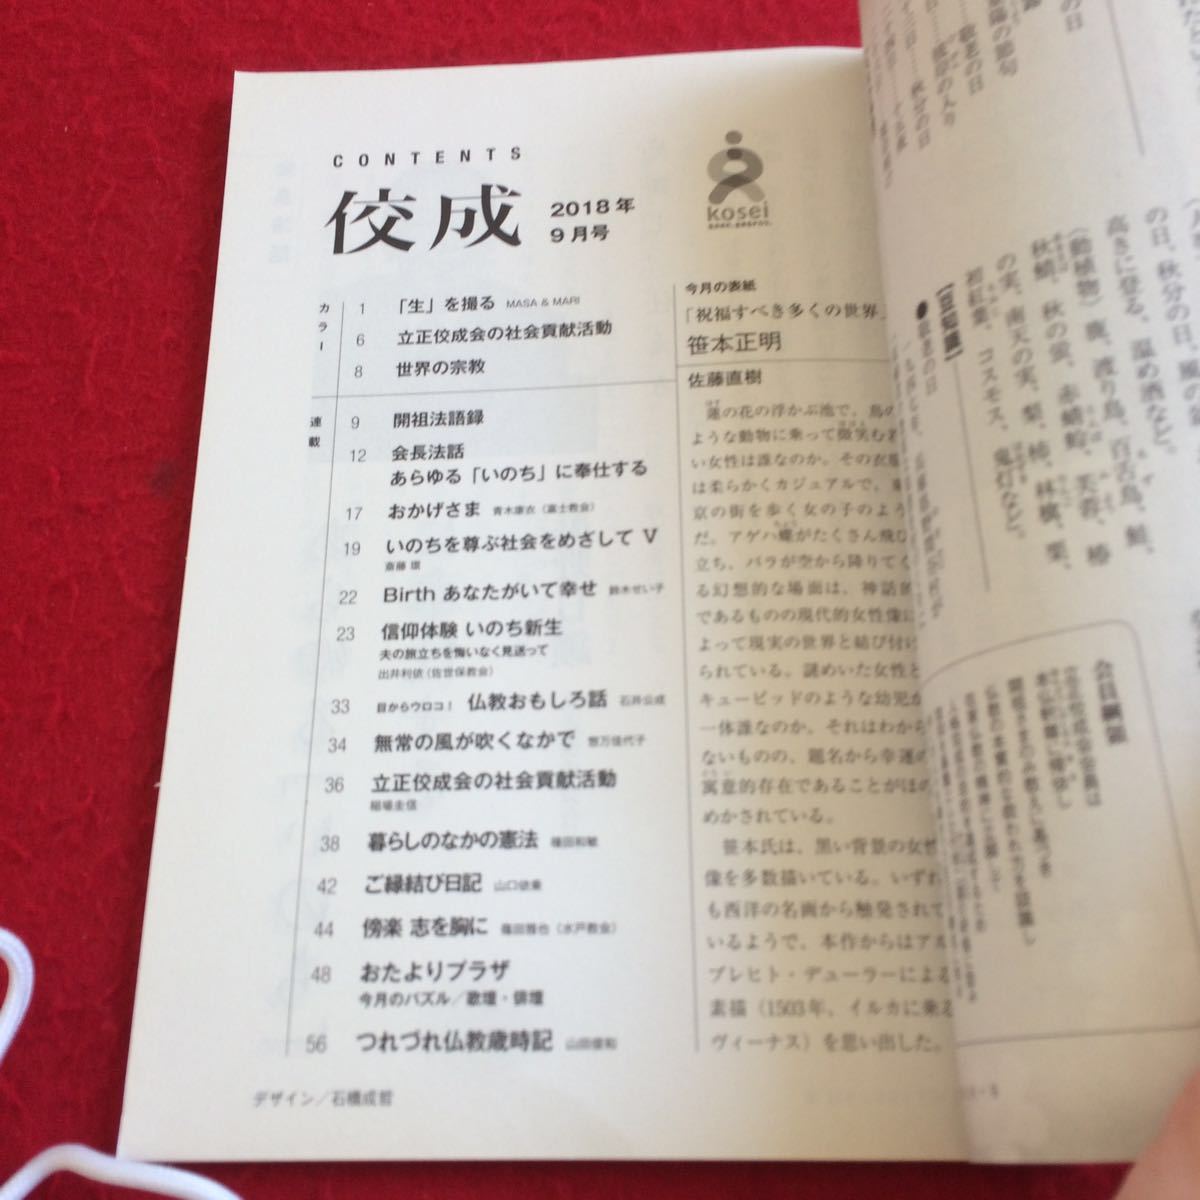 CONTENTS
佼成
2018年
9月号
kosei
カラー
1 「生」を撮る MASA & MARI
6 立正佼成会の社会貢献活動
8 世界の宗教
連載
9 開祖法語録
12 会長法話
あらゆる「いのち」に奉仕する
17 おかげさま 青木康衣(富士教会)
19 いのちを尊ぶ社会をめざして Ⅴ
斎藤 環
22 Birth あなたがいて幸せ 鈴木せい子
23 信仰体験 いのち新生
夫の旅立ちを悔いなく見送って
出井利依(佐世保教会)
33 目からウロコ! 仏教おもしろ話 石井公成
34 無常の風が吹くなかで 惣万佳代子
36 立正佼成会の社会貢献活動
稲場圭信
38 暮らしのなかの憲法 篠田和敏
42 ご縁結び日記
44 傍楽 志を胸に 篠田雅也(水戸教会)
48 おたよりプラザ
今月のパズル/歌壇・俳壇
56 つれづれ仏教歳時記 山田俊和
デザイン/石橋成哲
今月の表紙
「祝福すべき多くの世界」
笹本正明
佐藤直樹
蓮の花の浮かぶ池で、鳥の
ような動物に乗って微笑む
い女性は誰なのか。その衣服
は柔らかくカジュアルで、東
京の街を歩く女の子のよう
だ。アゲハ蝶がたくさん飛び
立ち、バラが空から降りてく
る幻想的な場面は、神話的
であるものの現代的女性像に
よって現実の世界と結び付け
られている。謎めいた女性と
キューピッドのような幼児が
一体誰なのか、それはわから
ないものの、題名から幸運の
寓意的存在であることがほの
めかされている。
笹本氏は、黒い背景の女性
像を多数描いている。いずれ
も西洋の名画から触発されて
いるようで、本作からはアル
ブレヒト・デューラーによる
素描(1503年、イルカに乗る
ヴィーナス)を思い出した。
の日、秋分の日、風の
高きに登る、温め酒など。
(動植物) 鹿、渡り鳥、百舌鳥、鮭、
秋鯖、秋の蛍、赤蜻蛉、芙蓉、椿
の実、南天の実、梨、柿、林檎、栗、
初紅葉、コスモス、鬼灯など。
【豆知識】
●敬老の日
会員綱領
立正佼成会会員は
本仏釈尊に帰依し
開祖さまのみ教えに基づき
仏教の本質的な救われ方を認識し